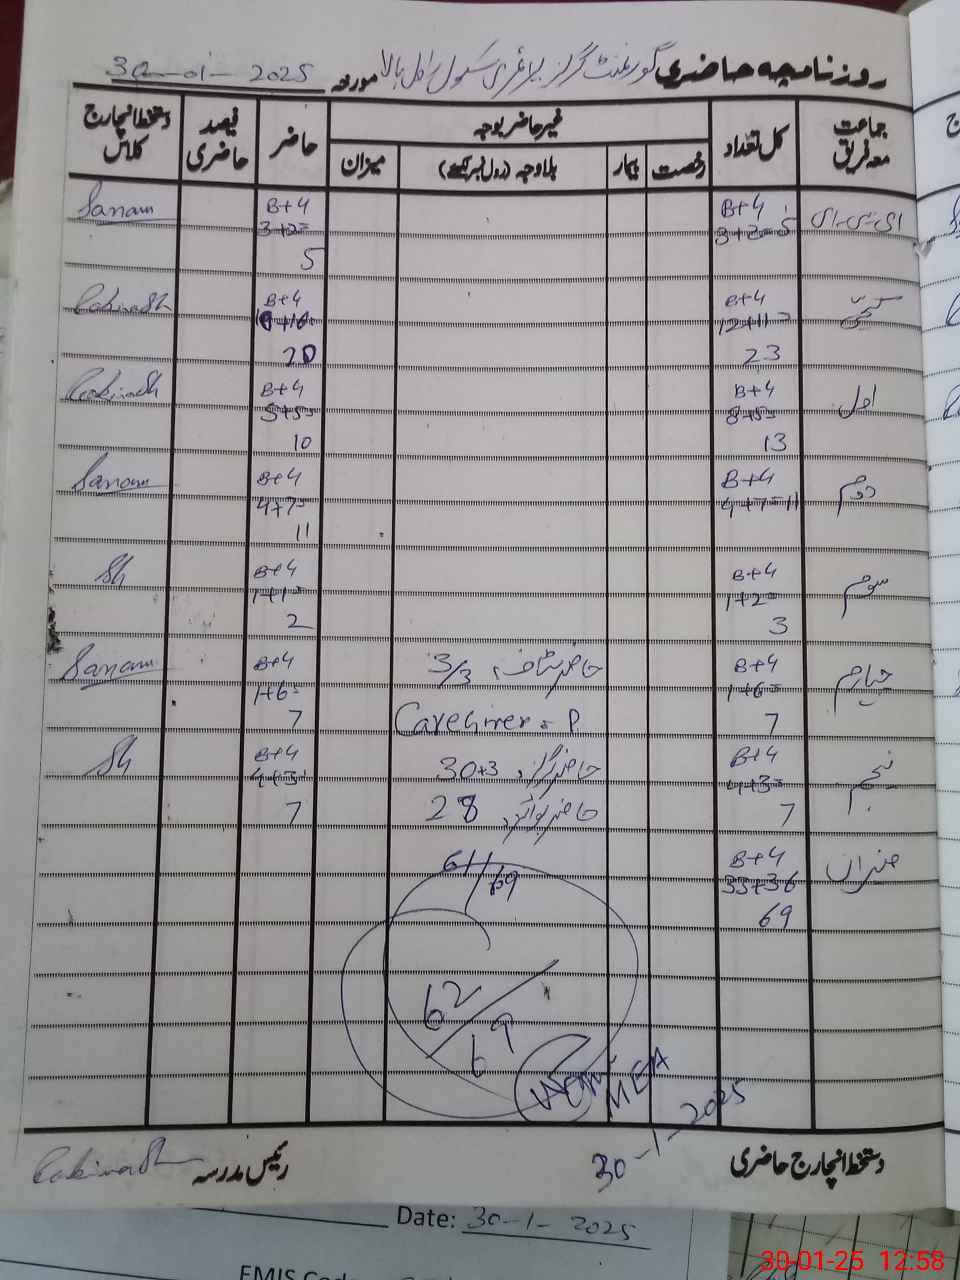 روزنامچہ حاضری گورنمنٹ گرلز پرائمری سکول بالا مورخہ 30-01-2025
جماعت معہ فریق | کل تعداد | غیر حاضر بوجہ | حاضر | فیصد حاضری | دستخط انچارج کلاس
رخصت | بیمار | بلاوجہ (رول نمبر لکھیے) | میزان
ای-سی-ای | B+4 | B+4 | Sanam
3+2=5 | 3+2=
5
کچی | B+4 | B+4
12+11=
23 | 20
اول | B+4 | B+4
8+5= | 5+5=
13 | 10
دوم | B+4 | B+4 | Sanam
4+7=11 | 4+7=
11
سوم | B+4 | B+4 | Sh
1+2= | 1+1=
3 | 2
چہارم | B+4 | حاضر سٹاف 3/3 | B+4 | Sanam
1+6= | 1+6=
7 | 7
پنجم | B+4 | حاضر گرلز 30+3 | B+4 | Sh
4+3= | 4+3=
7 | حاضر بوائز 28 | 7
میزان | B+4
33+36 | 61/69
69
62/69
MEA
30-1-2025
دستخط انچارج حاضری
رئیس مدرسہ
Date: 30-1-2025
30-01-25 12:58